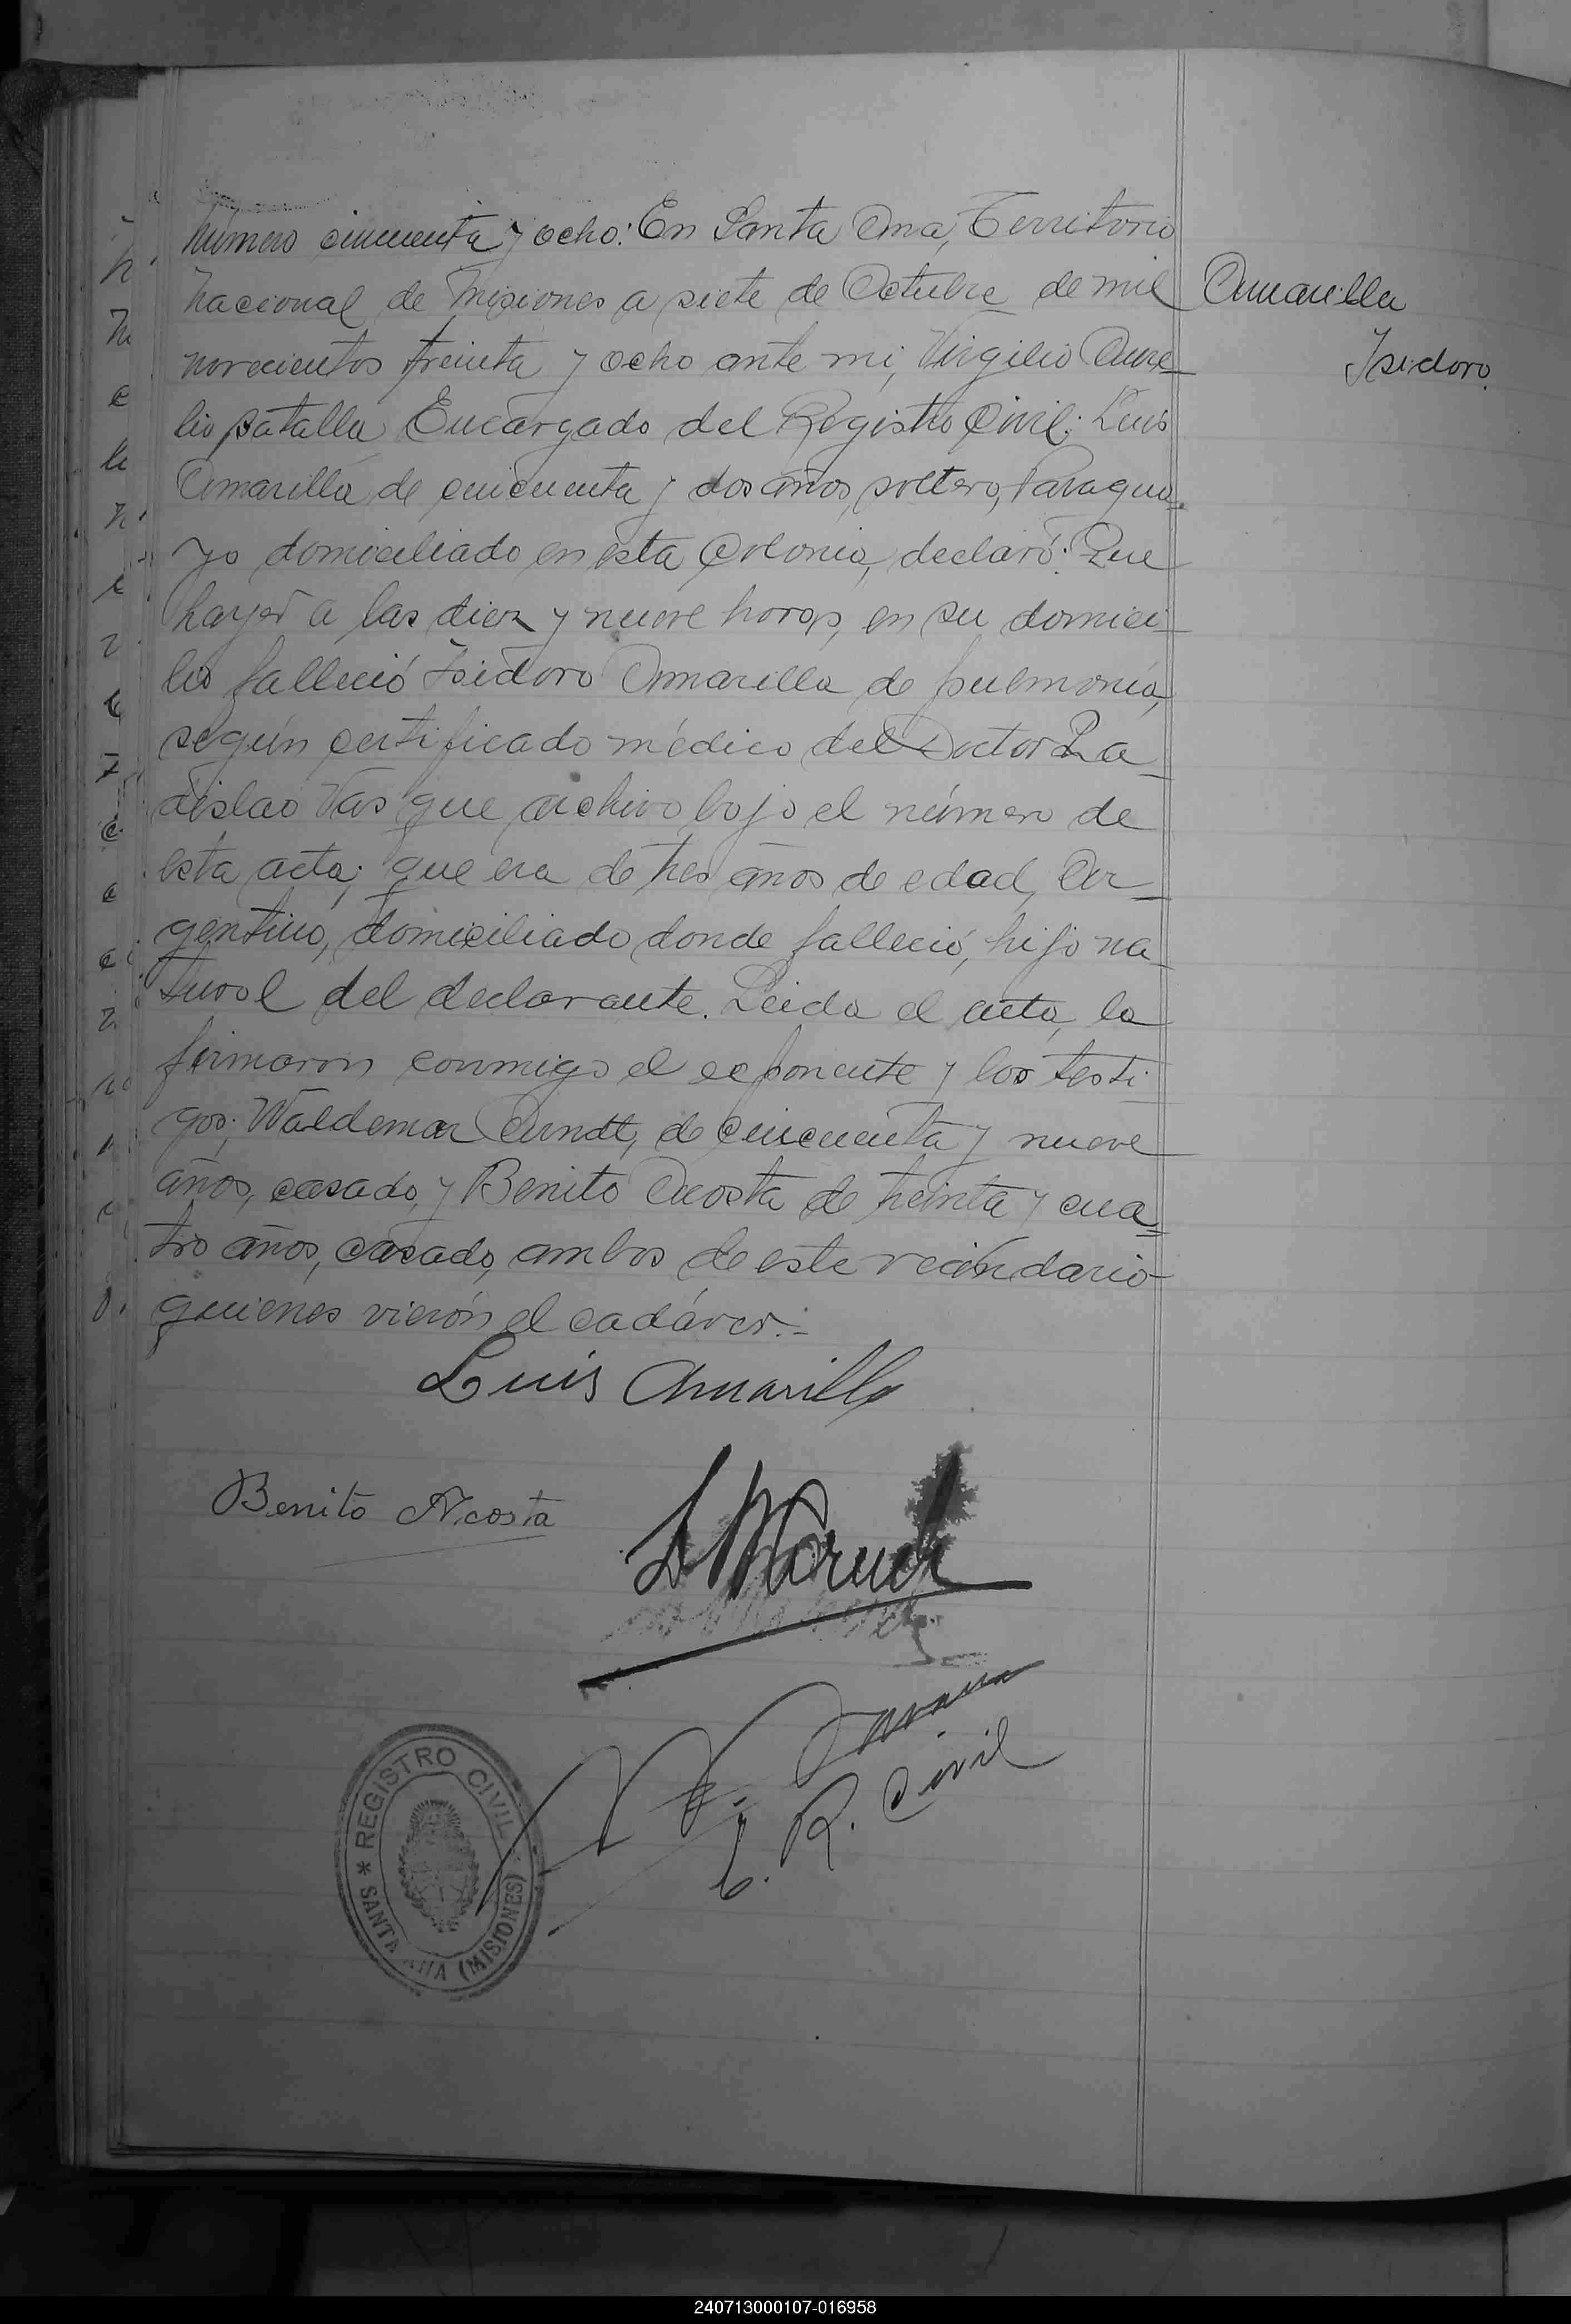 Número cincuenta y ocho: En Santa Ana, Territorio
Nacional de Misiones a siete de Octubre de mil
Amarilla
novecientos treinta y ocho ante mi, Virgilio Aure-
Isidoro.
lio Encargado del Registro Civil: Luis
Amarilla de cincuenta y dos años, soltero, Paragua-
yo domiciliado en esta Colonia, declaró: Que
hayer a las diez y nueve horas, en su domici-
lio falleció Isidoro Amarilla de pulmonía,
según certificado médico del Doctor La-
dislao que archivo bajo el número de
esta acta; que era de tres años de edad, Ar-
gentino, domiciliado donde falleció, hijo na-
tural del declarante. Leida el acta, la
firmaron conmigo el exponente y los testi-
gos: Waldemar Arndt, de cincuenta y nueve
años, casado, y Benito Acosta de treinta y cua-
tro años, casado, ambos de este vecindario
quienes vierón el cadáver.-
Luis Amarilla
Benito Acosta
E. R. Civil
* REGISTRO CIVIL * SANTA ANA (MISIONES)
240713000107-016958